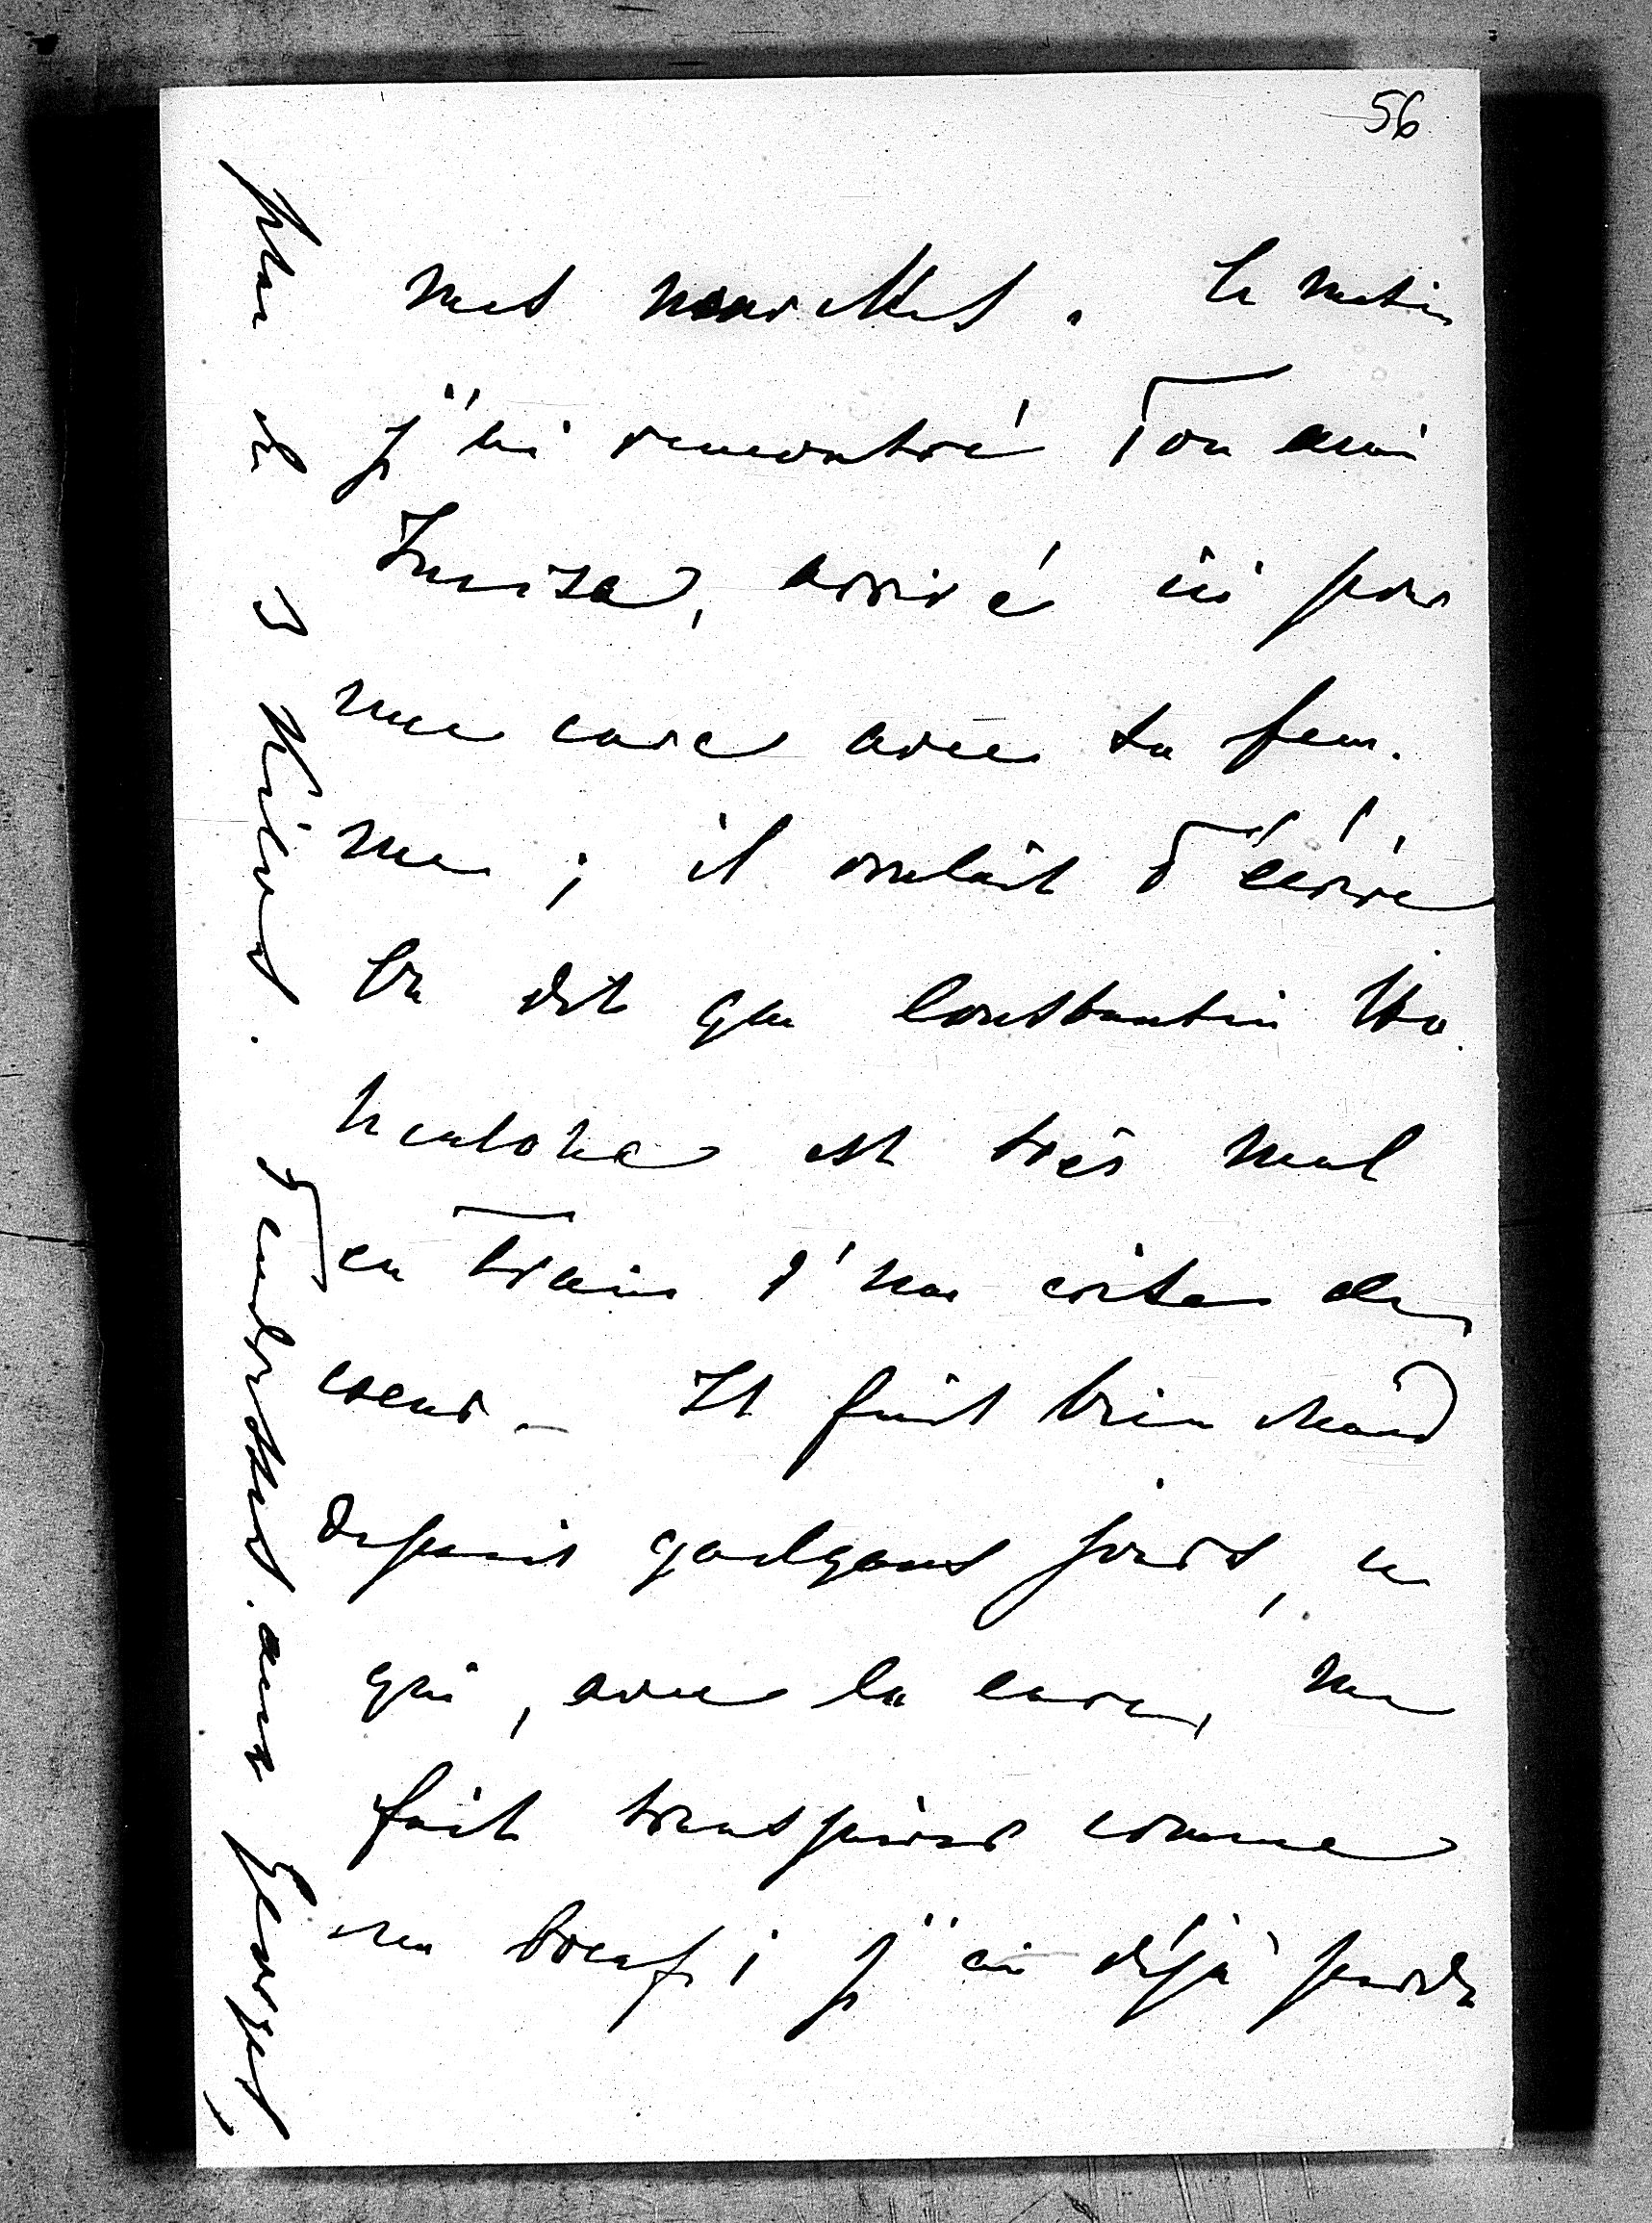 56
mes nouvelles. Ce matin
j'ai rencontré Ton ami
arrivé ici pour
une cure avec sa fem-
me ; il voulait T'écrire
On dit que Constantin
est très mal
en train d'une crise de
coeur – Il fait bien chaud
depuis quelques jours, ce
qui, avec la cure, me
fait transpirer comme
un boeuf ; j'ai déjà perdu
plus de 3 Kilos.
Tendresses aux Georges,